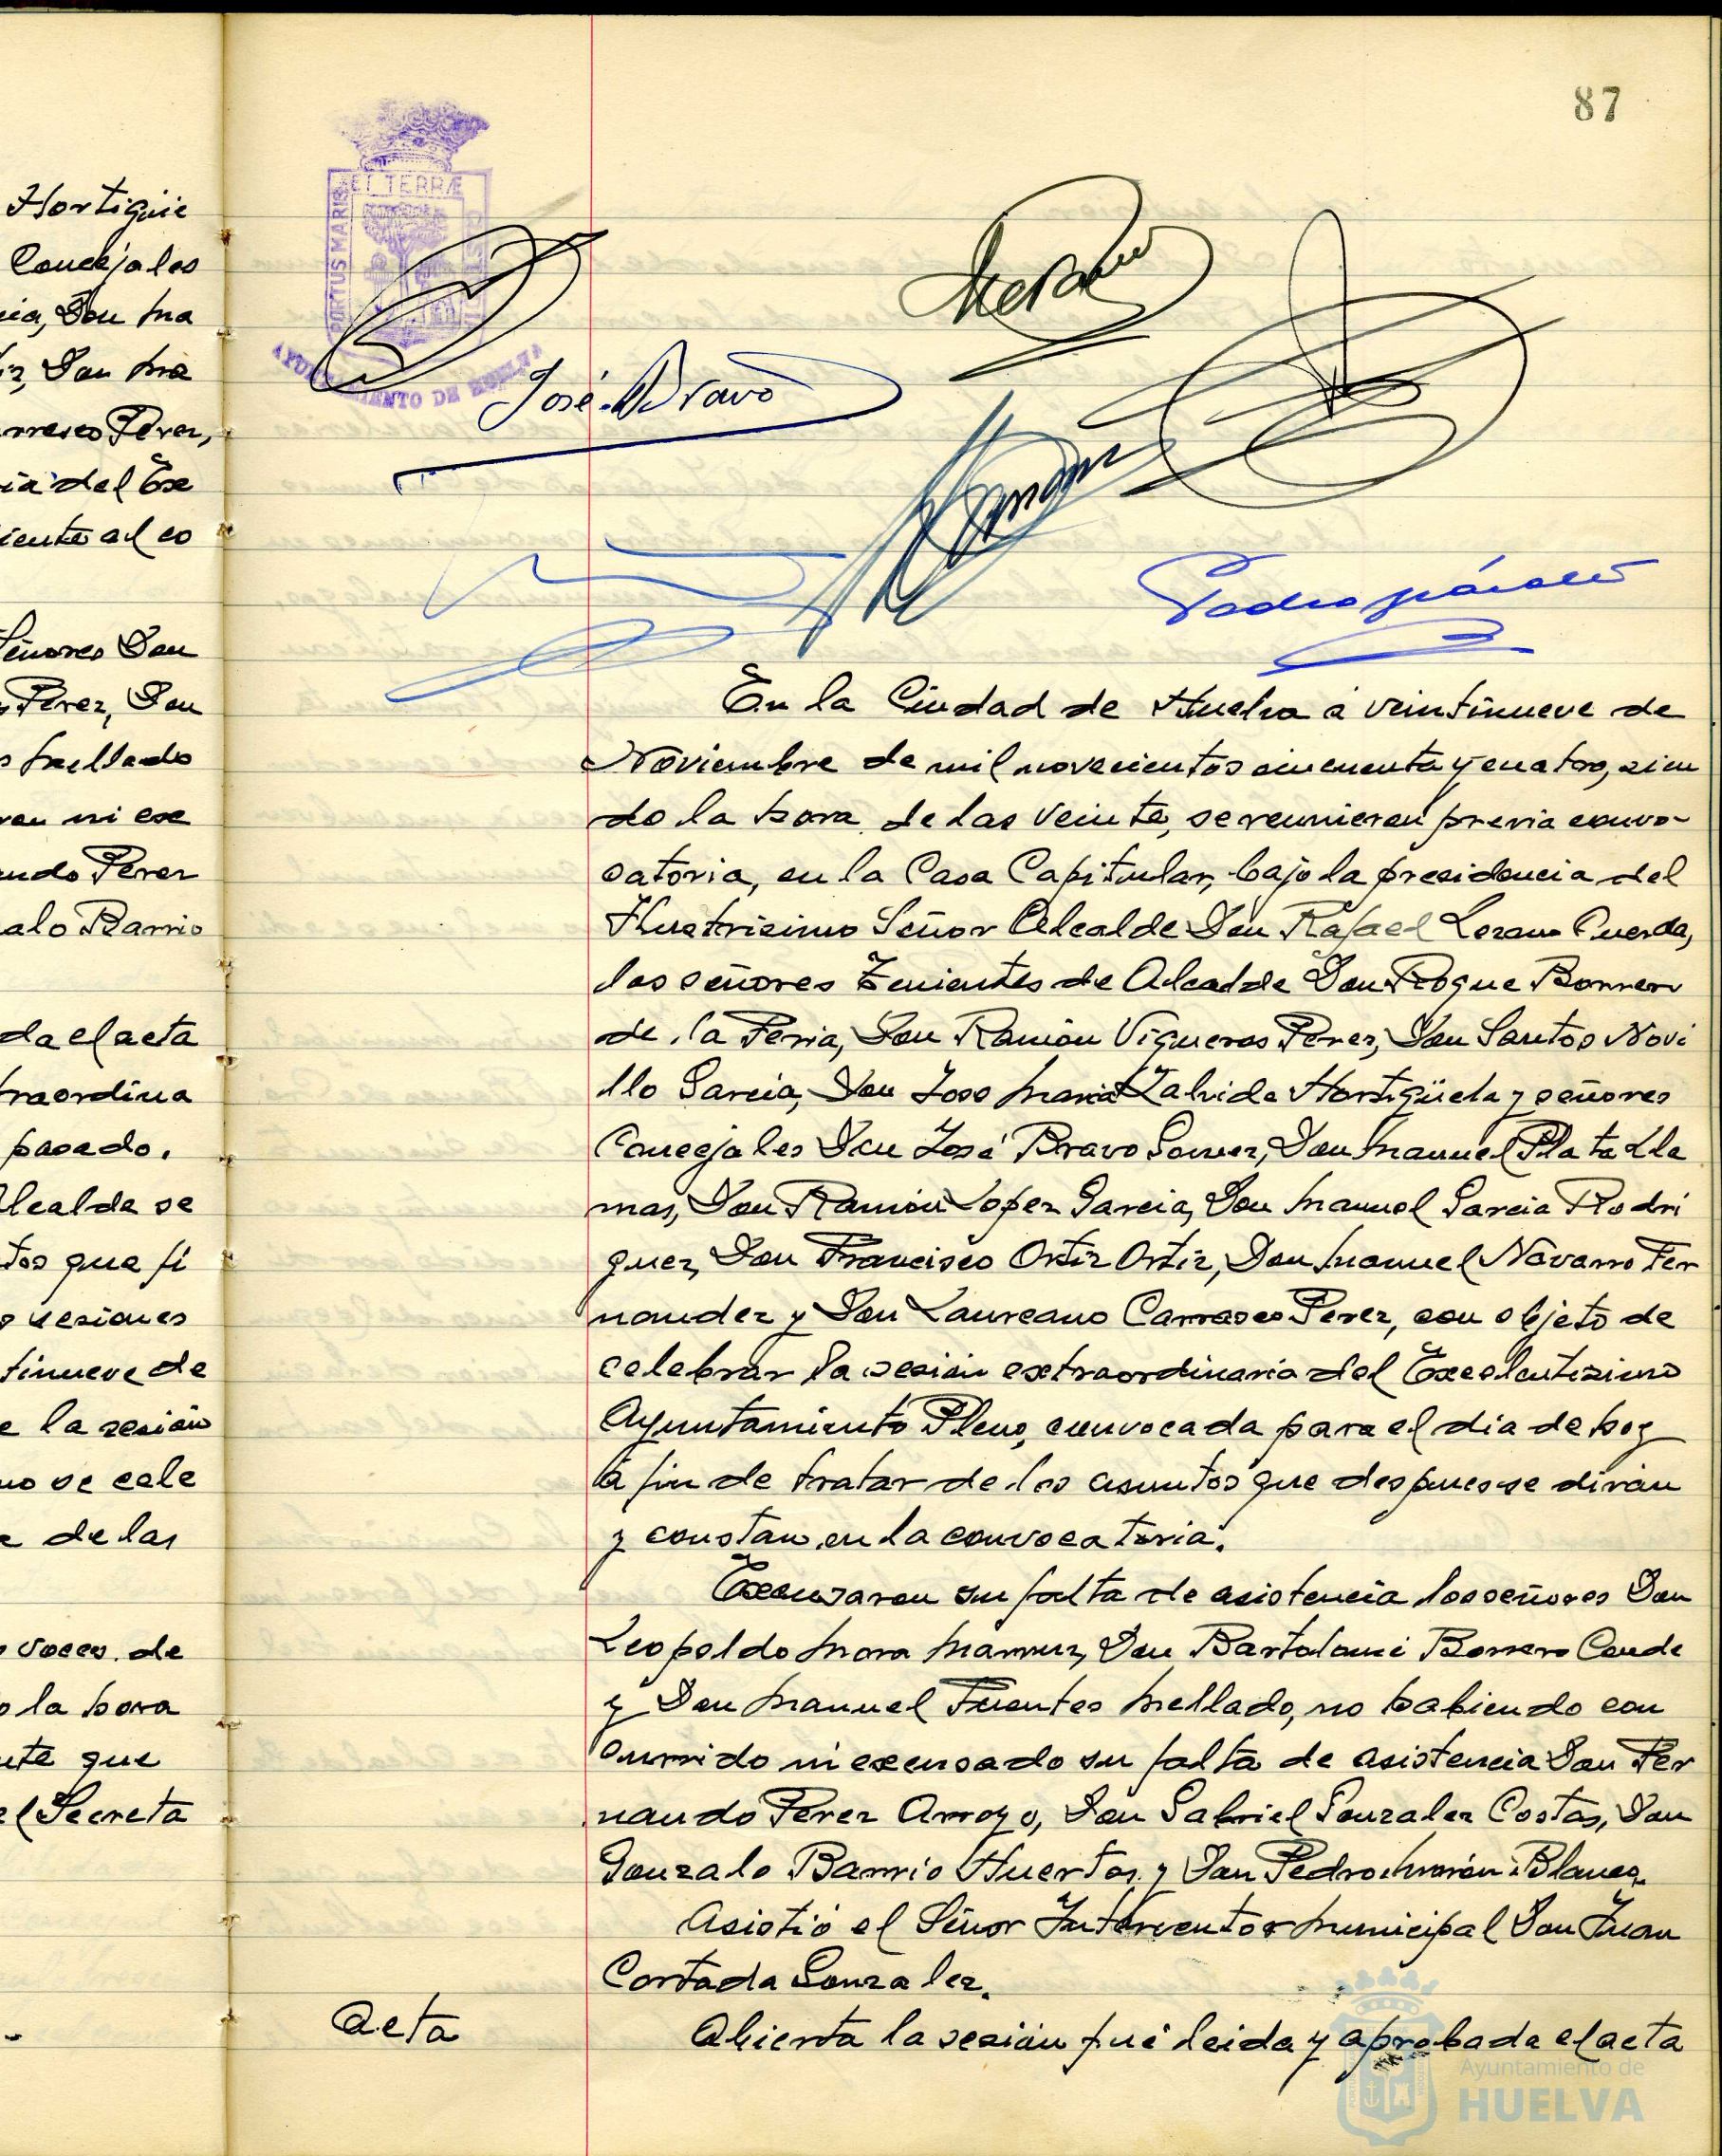 Hortigüe
Concejales
cia, Don Ma
iz, Don Ma
rrasco Perez,
ia del Exc
iente al co
Señores Don
Perez, Don
s Mellado
ron ni exc
ando Perez
zalo Barrio
da el acta
traordina
pasado.
Alcalde se
tos que fi
s sesiones
tinueve de
e la sesión
no se cele
e de las
s voces de
o la hora
nte que
el Secreta
87
PORTUS MARIS ET TERRÆ
AYUNTAMIENTO DE HUELVA
José Bravo
En la Ciudad de Huelva a veintinueve de
Noviembre de mil novecientos cincuenta y cuatro, sien
do la hora de las veinte, se reunieron previa convo-
catoria, en la Casa Capitular, bajo la presidencia del
Ilustrisimo Señor Alcalde Don Rafael Lozano Cuerda,
los señores Tenientes de Alcalde Don Roque Borrero
de la Feria, Don Ramón Vigueras Perez, Don Santos Novi
llo Garcia, Don Jose Maria Zalvide Hortigüela y señores
Concejales Don José Bravo Gomez, Don Manuel Plata Lla
mas, Don Ramón Lopez Garcia, Don Manuel Garcia Rodri
guez, Don Francisco Ortiz Ortiz, Don Manuel Navarro Fer
nandez y Don Laureano Carrasco Perez, con objeto de
celebrar la sesión extraordinaria del Excelentisimo
Ayuntamiento Pleno, convocada para el dia de hoy
a fin de tratar de los asuntos que despues se dirán
y constan en la convocatoria.
Excusaron su falta de asistencia los señores Don
Leopoldo Mora Don Bartolomé Borrero Conde
y Don Manuel Fuentes Mellado, no habiendo con
currido ni excusado su falta de asistencia Don Fer
nando Perez Arroyo, Don Gabriel Gonzalez Costas, Don
Gonzalo Barrio Huertos y Don Pedro Morón Blanco.
Asistió el Señor Interventor Municipal Don Juan
Cortada Gonzalez.
Acta
Abierta la sesión fué leida y aprobada el acta
Ayuntamiento de
HUELVA